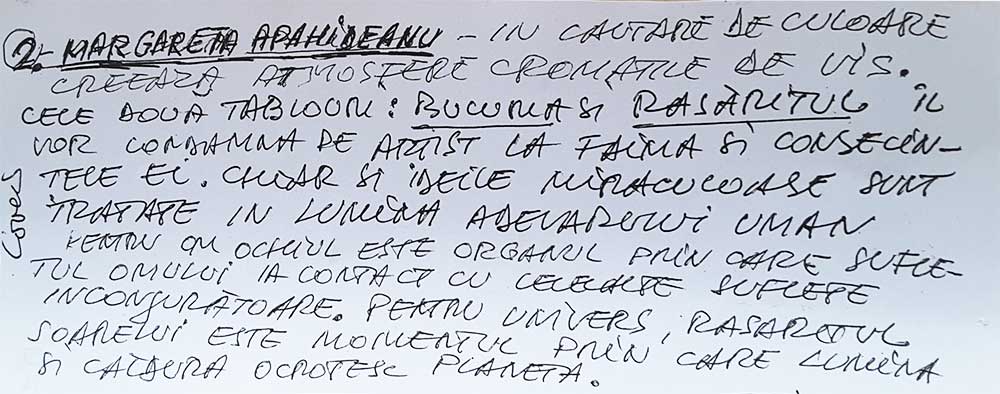 2. MARGARETA APAHIDEANU - IN CAUTARE DE CULOARE
CREEAZA ATMOSFERE CROMATICE DE VIS.
CELE DOUA TABLOURI: BUCURIA SI RASARITUL IL
VOR CONDAMNA PE ARTIST LA FAIMA SI CONSECIN-
TELE EI. CHIAR SI IDEILE MIRACULOASE SUNT
TRATATE IN LUMINA ADEVARULUI UMAN
PENTRU OM OCHIUL ESTE ORGANUL PRIN CARE SUFLE-
TUL OMULUI IA CONTACT CU CELELALTE SUFLETE
INCONJURĂTOARE. PENTRU UNIVERS, RASARITUL
SOARELUI ESTE MOMENTUL PRIN CARE LUMINA
SI CALDURA OCROTESC PLANETA.